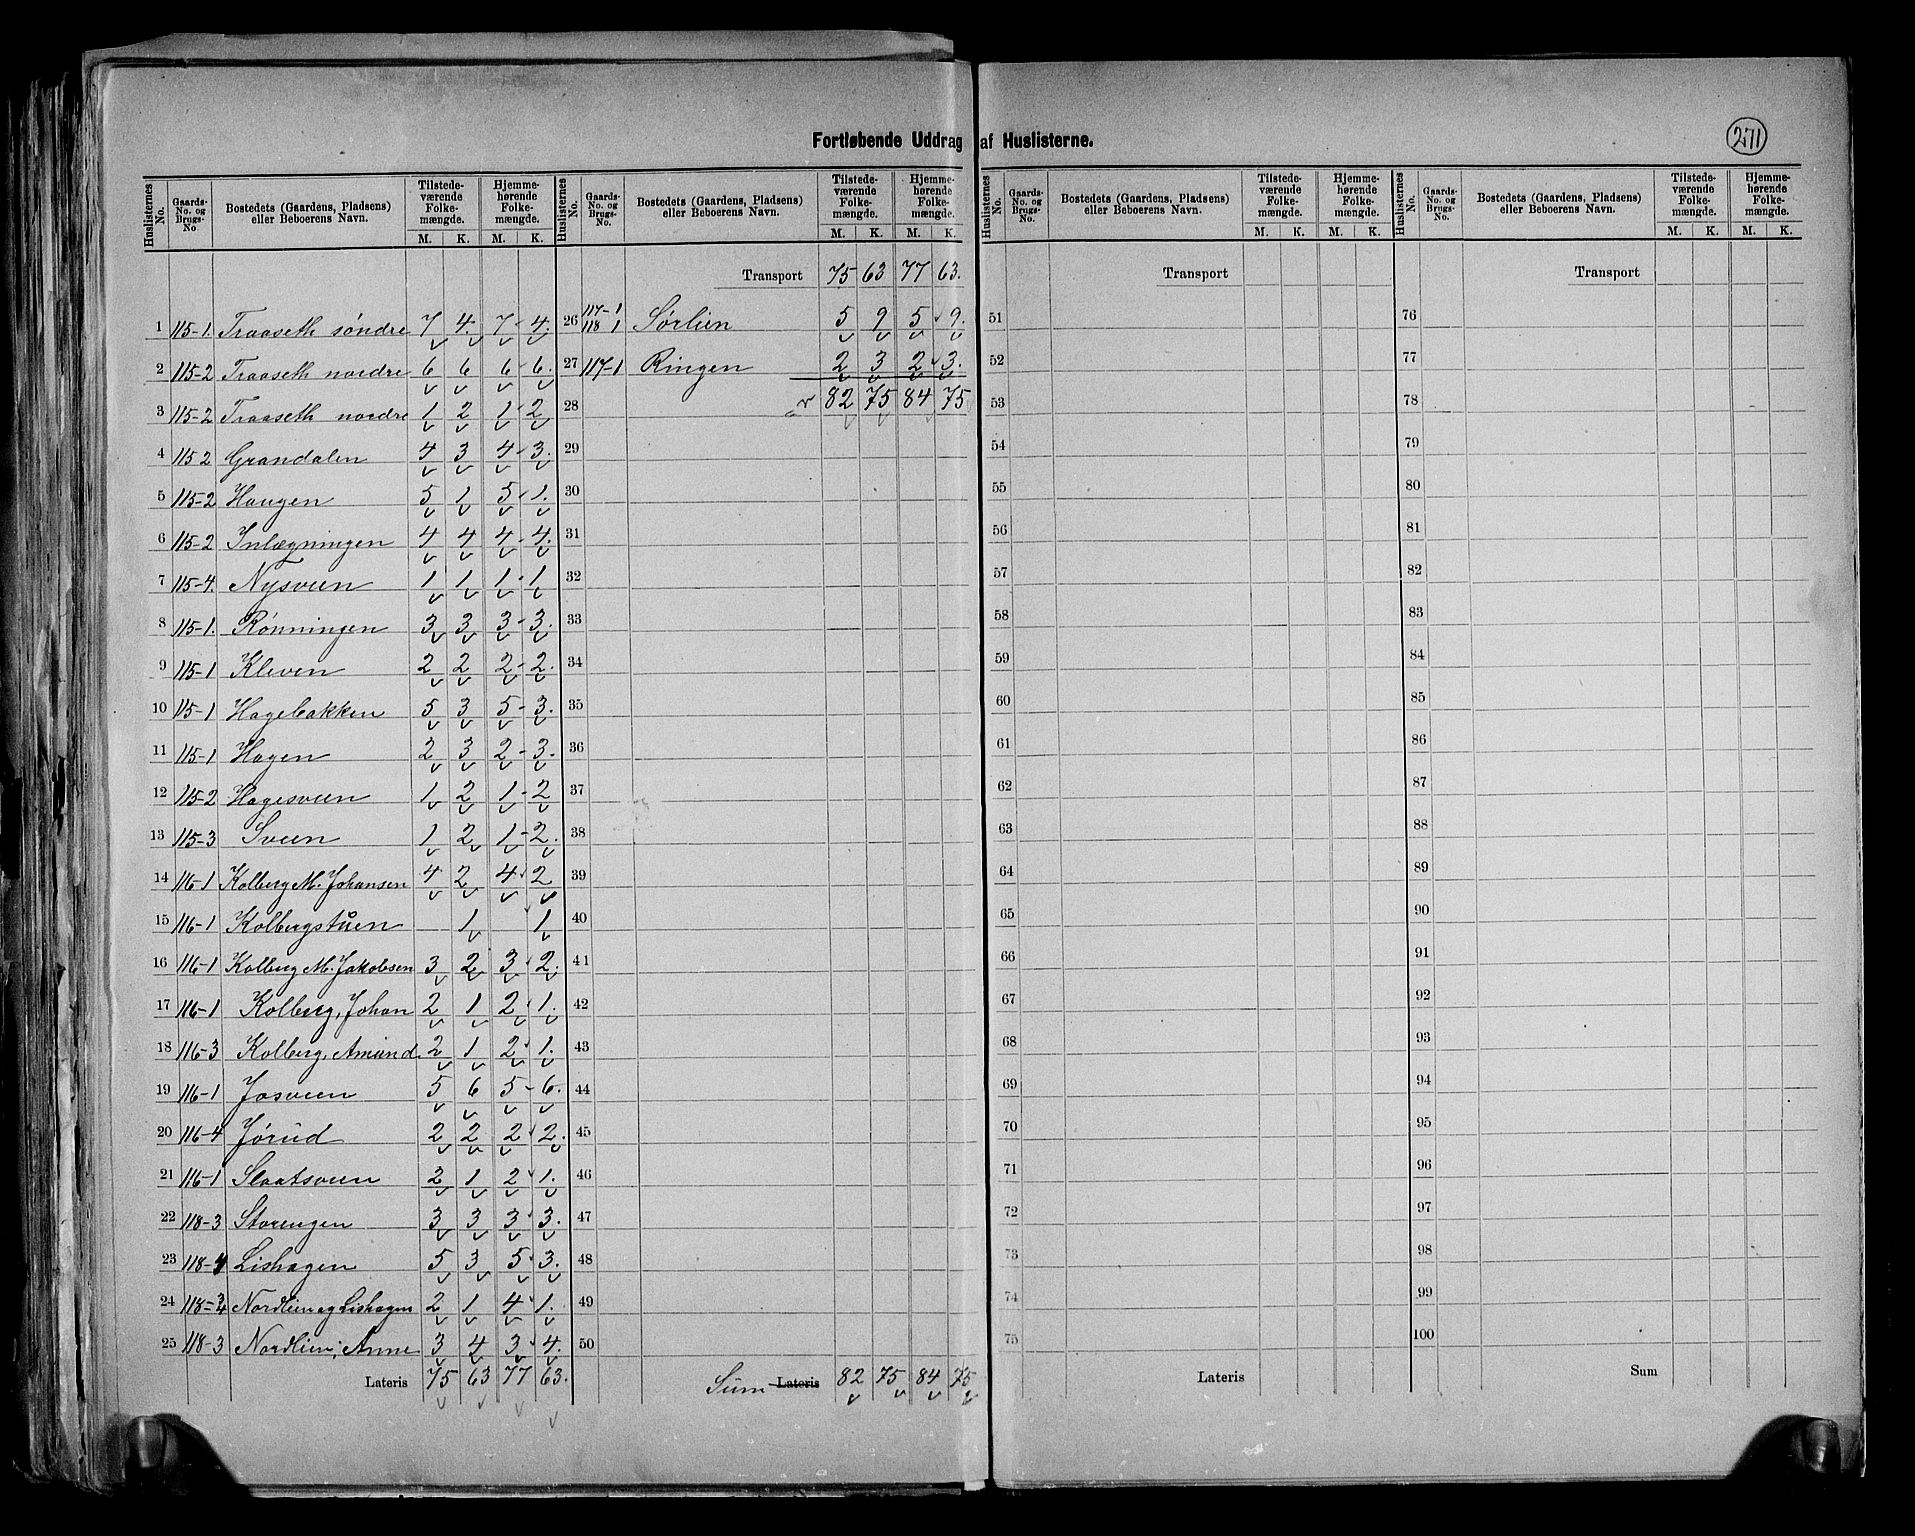 Fortløbende Uddrag af Huslisterne.
271
Huslisternes No. | Gaards-No. og Brugs-No | Bostedets (Gaardens, Pladsens) eller Beboerens Navn. | Tilstedeværende Folkemængde. M. K. | Hjemmehørende Folkemængde. M. K.
1 115-1. Traaseth søndre 7 4. 7 4.
2 115-2 Traaseth nordre 6 6 6 6.
3 115-2 Traaseth nordre 1 2 1 2
4 115 2 Grandalen 4 3 4 3.
5 115-2 Haugen 5 1 5 1.
6 115-2 Inlægningen 4 4 4 4.
7 115-4. Nysveen 1 1 1 1
8 115-1. Rønningen 3 3 3 3.
9 115-1 Kleven 2 2 2 2.
10 115-1 Hagebakken 5 3 5 3.
11 115-1 Hagen 2 3 2 3.
12 115-2 Hagesveen 1 2 1 2
13 115-3 Sveen 1 2 1 2.
14 116-1 Kolberg M. Johansen 4 2 4 2
15 116-1 Kolbergstuen 1 1
16 116-1 Kolberg M. Jakobsen 3 2 3 2.
17 116-1 Kolberg, Johan 2 1 2 1.
18 116-3 Kolberg, Amund 2 1 2 1.
19 116-1 Josveen 5 6 5 6.
20 116-4 Jørud 2 2 2 2.
21 116-1 Slaatsveen 2 1 2 1.
22 118-3 Storengen 3 3 3 3.
23 118-4 Lishagen 5 3 5 3.
24 118-3/4 Nordlien og Lishagen 2 1 4 1.
25 118-3 Nordlien, Anne 3 4 3 4.
Lateris 75 63 77 63.
Huslisternes No. | Gaards-No. og Brugs-No. | Bostedets (Gaardens, Pladsens) eller Beboerens Navn. | Tilstedeværende Folkemængde. M. K. | Hjemmehørende Folkemængde. M. K.
Transport 75 63 77 63.
26 117-1 118 1 Sørlien 5 9 5 9.
27 117-1 Ringen 2 3 2 3.
28 82 75 84 75
29
30
31
32
33
34
35
36
37
38
39
40
41
42
43
44
45
46
47
48
49
50
Sum Lateris 82 75 84 75
Huslisternes No. | Gaards-No. og Brugs-No. | Bostedets (Gaardens, Pladsens) eller Beboerens Navn. | Tilstedeværende Folkemængde. M. K. | Hjemmehørende Folkemængde. M. K.
Transport
51
52
53
54
55
56
57
58
59
60
61
62
63
64
65
66
67
68
69
70
71
72
73
74
75
Lateris
Huslisternes No. | Gaards-No. og Brugs-No. | Bostedets (Gaardens, Pladsens) eller Beboerens Navn. | Tilstedeværende Folkemængde. M. K. | Hjemmehørende Folkemængde. M. K.
Transport
76
77
78
79
80
81
82
83
84
85
86
87
88
89
90
91
92
93
94
95
96
97
98
99
100
Sum